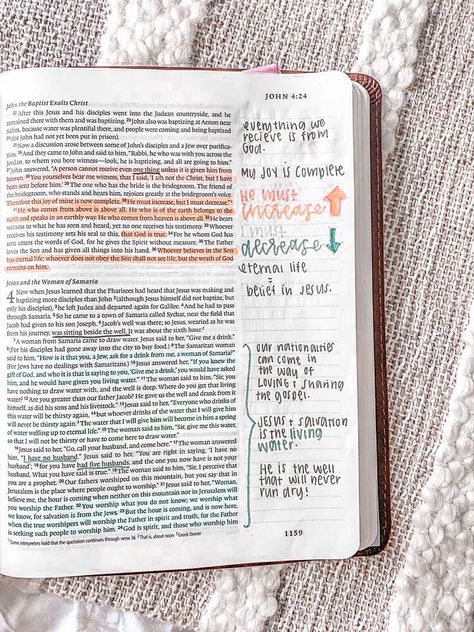 JOHN 4:24
John the Baptist Exalts Christ
22 After this Jesus and his disciples went into the Judean countryside, and he
remained there with them and was baptizing. 23 John also was baptizing at Aenon near
Salim, because water was plentiful there, and people were coming and being baptized
24 (for John had not yet been put in prison).
25 Now a discussion arose between some of John's disciples and a Jew over purifica-
tion. 26 And they came to John and said to him, "Rabbi, he who was with you across the
Jordan, to whom you bore witness—look, he is baptizing, and all are going to him."
27 John answered, "A person cannot receive even one thing unless it is given him from
heaven. 28 You yourselves bear me witness, that I said, 'I am not the Christ, but I have
been sent before him.' 29 The one who has the bride is the bridegroom. The friend of
the bridegroom, who stands and hears him, rejoices greatly at the bridegroom's voice.
Therefore this joy of mine is now complete. 30 He must increase, but I must decrease."
31 He who comes from above is above all. He who is of the earth belongs to the
earth and speaks in an earthly way. He who comes from heaven is above all. 32 He bears
witness to what he has seen and heard, yet no one receives his testimony. 33 Whoever
receives his testimony sets his seal to this, that God is true. 34 For he whom God has
sent utters the words of God, for he gives the Spirit without measure. 35 The Father
loves the Son and has given all things into his hand. 36 Whoever believes in the Son
has eternal life; whoever does not obey the Son shall not see life, but the wrath of God
remains on him.
Jesus and the Woman of Samaria
4 Now when Jesus learned that the Pharisees had heard that Jesus was making and
baptizing more disciples than John 2 (although Jesus himself did not baptize, but
only his disciples), 3 he left Judea and departed again for Galilee. 4 And he had to pass
through Samaria. 5 So he came to a town of Samaria called Sychar, near the field that
Jacob had given to his son Joseph. 6 Jacob's well was there; so Jesus, wearied as he was
from his journey, was sitting beside the well. It was about the sixth hour.
7 A woman from Samaria came to draw water. Jesus said to her, "Give me a drink."
8 (For his disciples had gone away into the city to buy food.) 9 The Samaritan woman
said to him, "How is it that you, a Jew, ask for a drink from me, a woman of Samaria?"
(For Jews have no dealings with Samaritans.) 10 Jesus answered her, "If you knew the
gift of God, and who it is that is saying to you, 'Give me a drink,' you would have asked
him, and he would have given you living water." 11 The woman said to him, "Sir, you
have nothing to draw water with, and the well is deep. Where do you get that living
water? 12 Are you greater than our father Jacob? He gave us the well and drank from it
himself, as did his sons and his livestock." 13 Jesus said to her, "Everyone who drinks of
this water will be thirsty again, 14 but whoever drinks of the water that I will give him
will never be thirsty again. The water that I will give him will become in him a spring
of water welling up to eternal life." 15 The woman said to him, "Sir, give me this water,
so that I will not be thirsty or have to come here to draw water."
16 Jesus said to her, "Go, call your husband, and come here." 17 The woman answered
him, "I have no husband." Jesus said to her, "You are right in saying, 'I have no
husband'; 18 for you have had five husbands, and the one you now have is not your
husband. What you have said is true." 19 The woman said to him, "Sir, I perceive that
you are a prophet. 20 Our fathers worshiped on this mountain, but you say that in
Jerusalem is the place where people ought to worship." 21 Jesus said to her, "Woman,
believe me, the hour is coming when neither on this mountain nor in Jerusalem will
you worship the Father. 22 You worship what you do not know; we worship what
we know, for salvation is from the Jews. 23 But the hour is coming, and is now here,
when the true worshipers will worship the Father in spirit and truth, for the Father
is seeking such people to worship him. 24 God is spirit, and those who worship him
Some interpreters hold that the quotation continues through verse 36 2 That is, about noon 3 Greek forever
everything we
recieve is from
God.
My joy is complete
He must
increase
I must
decrease
eternal life
=
belief in Jesus.
our nationalities
can come in
the way of
LOVING + sharing
the gospel.
JESUS + salvation
is the living
water.
He is the well
that will never
run dry!
1159